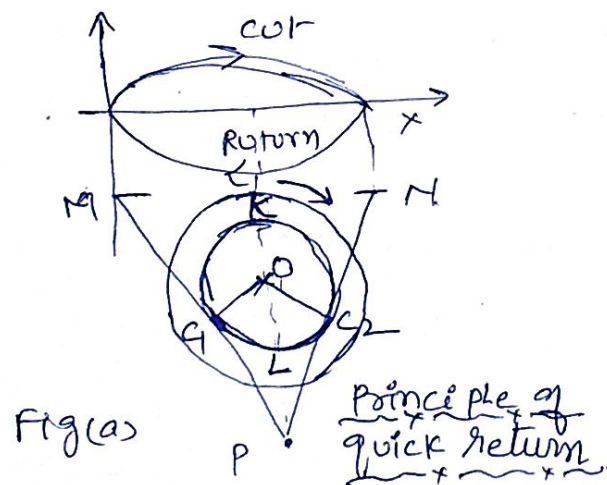 cut
x
Return
M
N
K
O
C1
C2
L
P
Fig(a)
Principle of
quick return